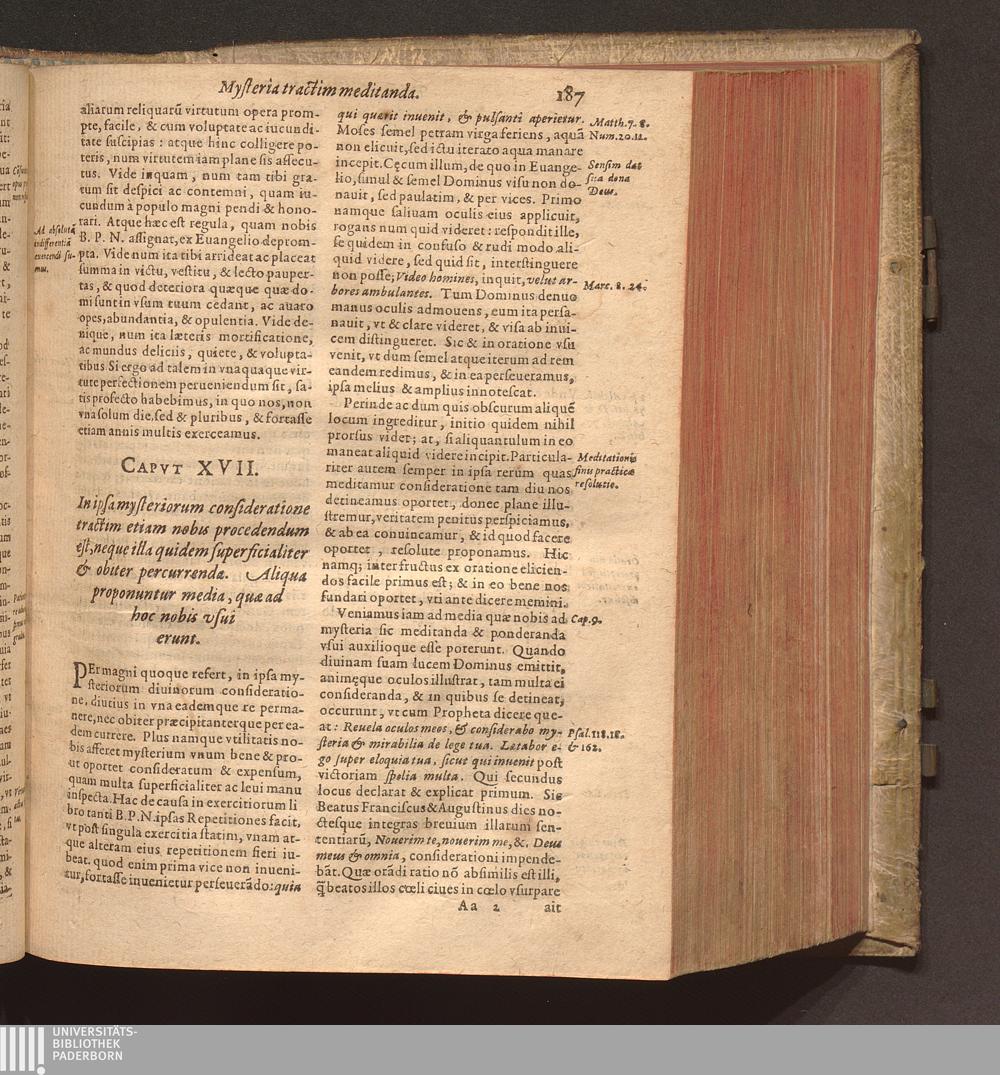 Mysteria tractim meditanda.
187
aliarum reliquarũ virtutum opera prom-
pte, facile, & cum voluptate ac iucundi-
tate suscipias: atque hinc colligere po-
teris, num virtutem iam plane sis assecu-
tus. Vide inquam, num tam tibi gra-
tum sit despici ac contemni, quam iu-
cundum à populo magni pendi & hono-
rari. Atque hæc est regula, quam nobis
B. P. N. assignat, ex Euangelio deprom-
pta. Vide num ita tibi arrideat ac placeat
summa in victu, vestitu, & lecto pauper-
tas, & quod deteriora quæque quæ do-
mi sunt in vsum tuum cedant, ac auaro
opes, abundantia, & opulentia. Vide de-
nique, num ita læteris mortificatione,
ac mundus deliciis, quiete, & volupta-
tibus. Si ergo ad talem in vnaquaque vir-
tute perfectionem perueniendum sit, sa-
tis profecto habebimus, in quo nos, non
vna solum die, sed & pluribus, & fortasse
etiam annis multis exerceamus.
Ad absolutã
indifferentiã
exercendi su-
mus.
CAPVT XVII.
In ipsa mysteriorum consideratione
tractim etiam nobis procedendum
est, neque illa quidem superficialiter
& obiter percurrenda. Aliqua
proponuntur media, quæ ad
hoc nobis vsui
erunt.
PEr magni quoque refert, in ipsa my-
steriorum diuinorum consideratio-
ne, diutius in vna eademque re perma-
nere, nec obiter præcipitanterque per ea-
dem currere. Plus namque vtilitatis no-
bis afferet mysterium vnum bene & pro-
ut oportet consideratum & expensum,
quam multa superficialiter ac leui manu
inspecta. Hac de causa in exercitiorum li
bro tanti B. P. N. ipsas Repetitiones facit,
vt post singula exercitia statim, vnam at-
que alteram eius repetitionem fieri iu-
beat. quod enim prima vice non inueni-
tur, fortasse inuenietur perseuerãdo: quia
qui quærit inuenit, & pulsanti aperietur.
Moses semel petram virga feriens, aquã
non elicuit, sed ictu iterato aqua manare
incepit. Cęcum illum, de quo in Euange-
lio, simul & semel Dominus visu non do-
nauit, sed paulatim, & per vices. Primo
namque saliuam oculis eius applicuit,
rogans num quid videret: respondit ille,
se quidem in confuso & rudi modo ali-
quid videre, sed quid sit, interstinguere
non posse; Video homines, inquit, velut ar-
bores ambulantes. Tum Dominus denuo
manus oculis admouens, eum ita persa-
nauit, vt & clare videret, & visa ab inui-
cem distingueret. Sic & in oratione vsu
venit, vt dum semel atque iterum ad rem
eandem redimus, & in ea perseueramus,
ipsa melius & amplius innotescat.
Perinde ac dum quis obscurum aliquẽ
locum ingreditur, initio quidem nihil
prorsus videt; at, si aliquantulum in eo
maneat aliquid videre incipit. Particula-
riter autem semper in ipsa rerum quas
meditamur consideratione tam diu nos
detineamus oportet, donec plane illu-
stremur, veritatem penitus perspiciamus,
& ab ea conuincamur, & id quod facere
oportet, resolute proponamus. Hic
namq; inter fructus ex oratione elicien-
dos facile primus est; & in eo bene nos
fundari oportet, vti ante dicere memini.
Veniamus iam ad media quæ nobis ad
mysteria sic meditanda & ponderanda
vsui auxilioque esse poterunt. Quando
diuinam suam lucem Dominus emittit,
animęque oculos illustrat, tam multa ei
consideranda, & in quibus se detineat,
occurrunt, vt cum Propheta dicere que-
at: Reuela oculos meos, & considerabo my-
steria & mirabilia de lege tua. Lætabor e-
go super eloquia tua, sicut qui inuenit post
victoriam spolia multa. Qui secundus
locus declarat & explicat primum. Sic
Beatus Franciscus & Augustinus dies no-
ctesque integras breuium illarum sen-
tentiarũ, Nouerim te, nouerim me, &. Deus
meus & omnia, considerationi impende-
bãt. Quæ orãdi ratio nõ absimilis est illi,
q̃ beatos illos cœli ciues in cœlo vsurpare
Matth. 7. 8.
Num. 20. 11.
Sensim dat
sua dona
Deus.
Marc. 8. 24.
Meditationis
finis practicæ
resolutio.
Cap. 9.
Psal. 118. 18.
& 162.
Aa 2
ait
UNIVERSITÄTS-
BIBLIOTHEK
PADERBORN